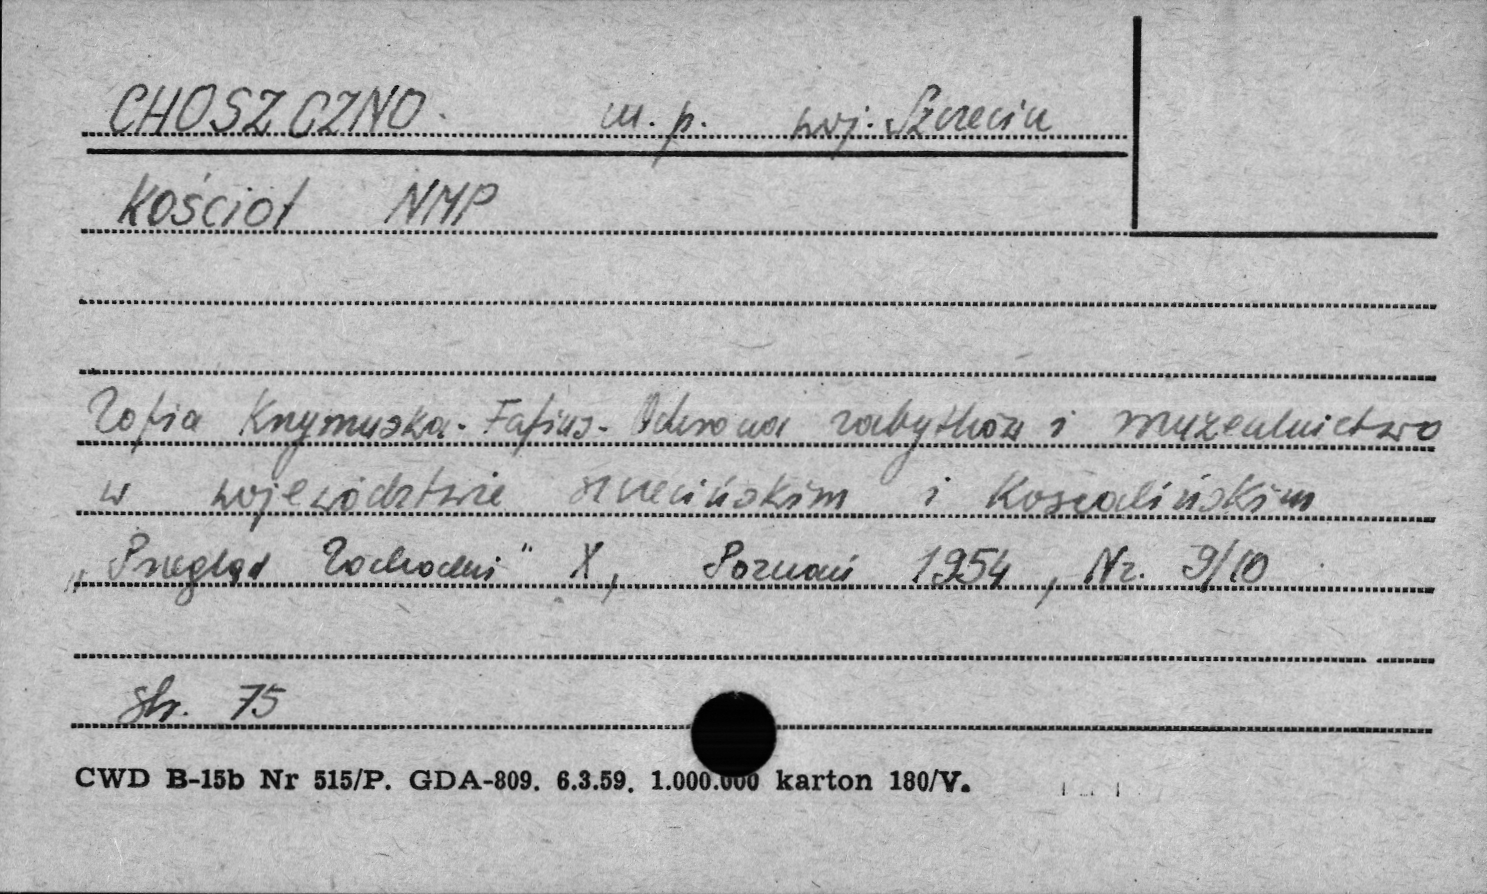 CHOSZCZNO. m. p. woj. Szczecin
Kościół NMP
Zofia Krzymuska-Fafius - Ochrona zabytków i muzealnictwo
w województwie szczecińskim i Koszalińskim
„Przegląd Zachodni" X, Poznań 1954, Nr. 9/10
str. 75
CWD B-15b Nr 515/P. GDA-809. 6.3.59. 1.000.000 karton 180/V.